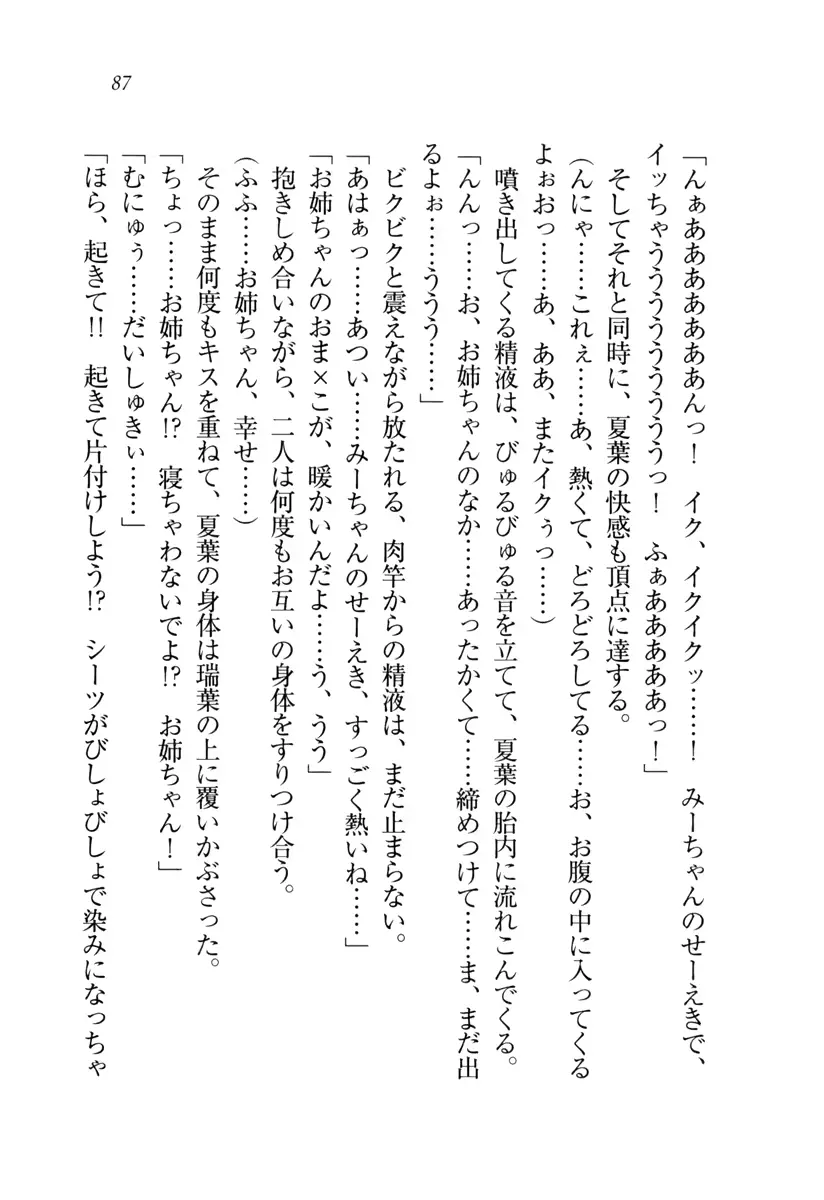 87
「んぁああああああああんっ！　イク、イクイクッ……！　みーちゃんのせーえきで、
イッちゃうううううううううっ！　ふぁああああああっ！」
そしてそれと同時に、夏葉の快感も頂点に達する。
（んにゃ……これぇ……あ、熱くて、どろどろしてる……お、お腹の中に入ってくる
よぉおっ……あ、ああ、またイクぅっ……）
噴き出してくる精液は、びゅるびゅる音を立てて、夏葉の胎内に流れこんでくる。
「んんっ……お、お姉ちゃんのなか……あったかくて……締めつけて……ま、まだ出
るよぉ……ううう……」
ビクビクと震えながら放たれる、肉竿からの精液は、まだ止まらない。
「あはぁっ……あつい……みーちゃんのせーえき、すっごく熱いね……」
「お姉ちゃんのおま×こが、暖かいんだよ……う、うう」
抱きしめ合いながら、二人は何度もお互いの身体をすりつけ合う。
（ふふ……お姉ちゃん、幸せ……）
そのまま何度もキスを重ねて、夏葉の身体は瑞葉の上に覆いかぶさった。
「ちょっ……お姉ちゃん!?　寝ちゃわないでよ!?　お姉ちゃん！」
「むにゅぅ……だいしゅきぃ……」
「ほら、起きて!!　起きて片付けしよう!?　シーツがびしょびしょで染みになっちゃ